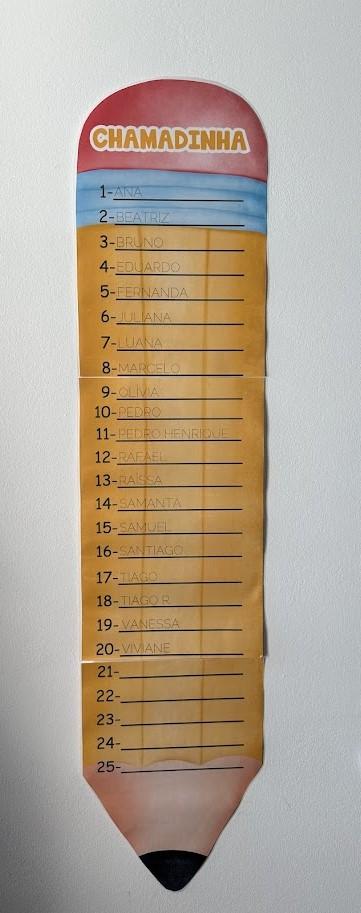 CHAMADINHA
1-ANA
2-BEATRIZ
3-BRUNO
4-EDUARDO
5-FERNANDA
6-JULIANA
7-LUANA
8-MARCELO
9-OLÍVIA
10-PEDRO
11-PEDRO HENRIQUE
12-RAFAEL
13-RAÍSSA
14-SAMANTA
15-SAMUEL
16-SANTIAGO
17-TIAGO
18-TIAGO R.
19-VANESSA
20-VIVIANE
21-
22-
23-
24-
25-